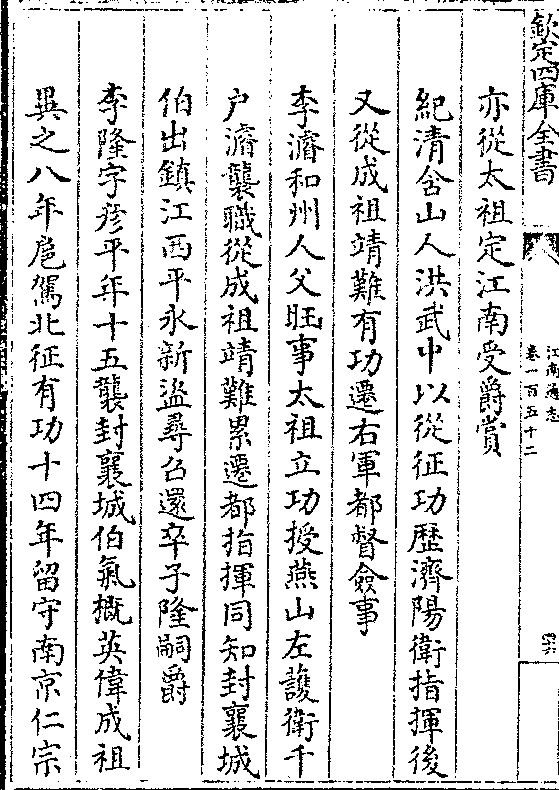 欽定四庫全書
江南通志
卷一百五十二
亦從太祖定江南受爵賞
紀清含山人洪武中以從征功歷濟陽衛指揮後
又從成祖靖難有功遷右軍都督僉事
李濬和州人父旺事太祖立功授燕山左護衛千
户濬襲職從成祖靖難累遷都指揮同知封襄城
伯出鎮江西平永新盜尋召還卒子隆嗣爵
李隆字彦平年十五襲封襄城伯氣概英偉成祖
異之八年扈駕北征有功十四年留守南京仁宗